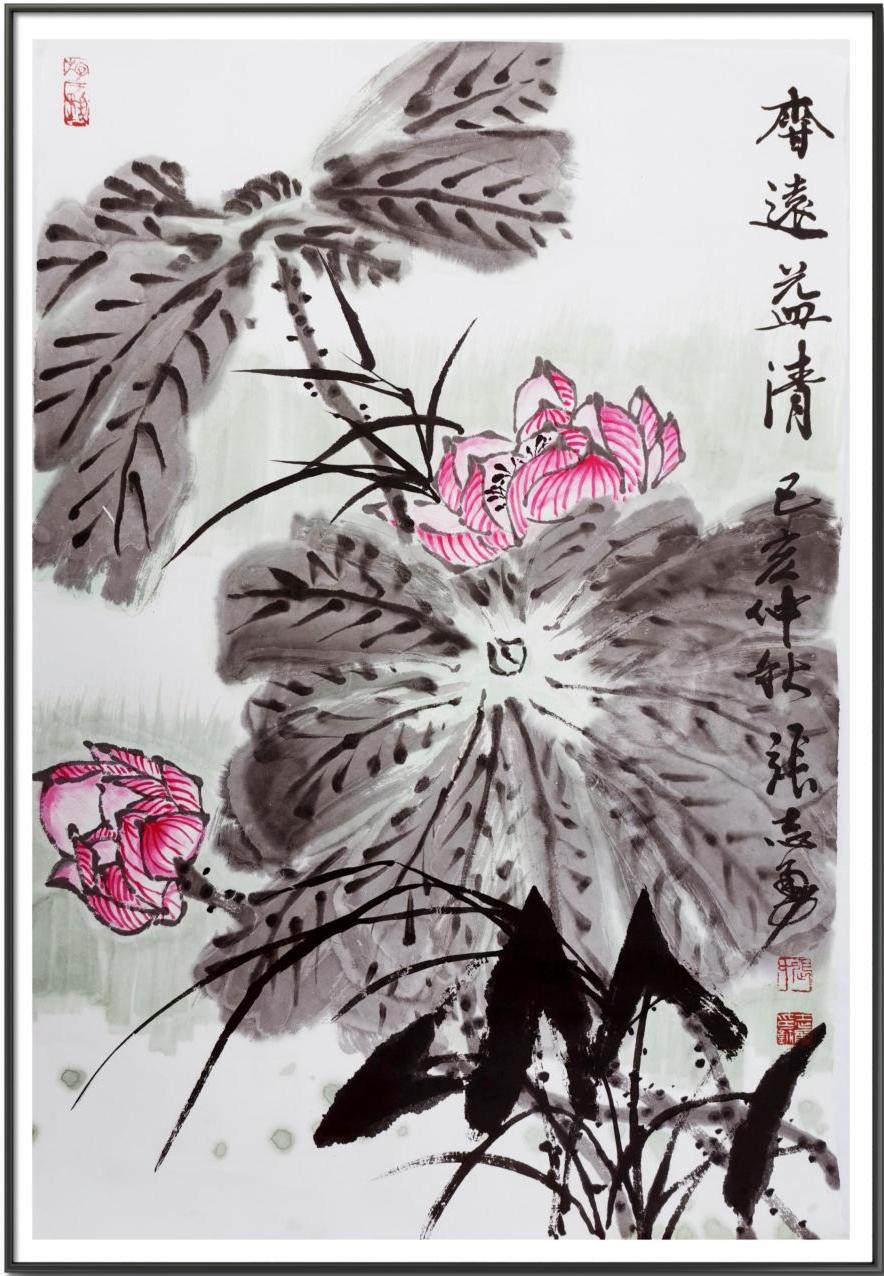 香遠益清 己亥仲秋 張志勇